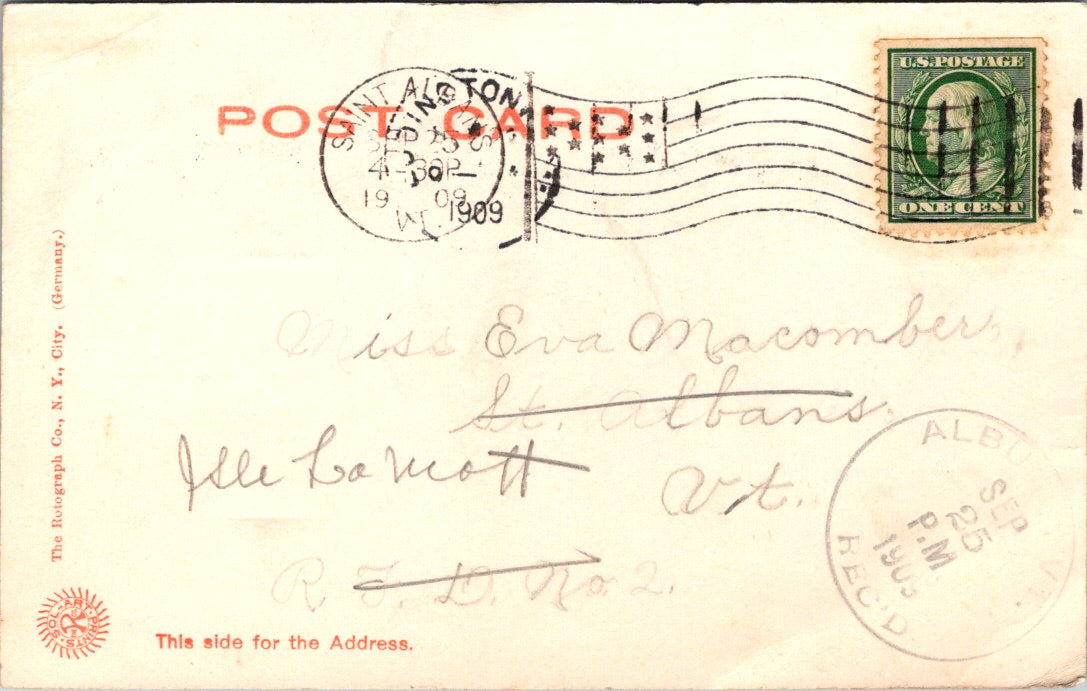 POST CARD
SAINT ALBANS
SEP 25
4-30P
19 09
VT.
INGTON
1909
U.S.POSTAGE
ONE CENT
Miss Eva Macomber
St. Albans
Isle La Mott
Vt.
R. F. D. No. 2.
ALBU
SEP
25
P.M.
REC'D
The Rotograph Co., N. Y., City. (Germany.)
SOL-ART-PRINTS
This side for the Address.